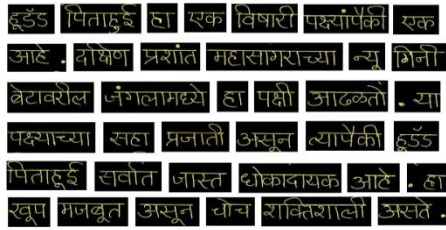 हूडॅड पिताहुई हा एक विषारी पक्ष्यांपैकी एक
आहे . दक्षिण प्रशांत महासागराच्या न्यू गिनी
बेटावरील जंगलामध्ये हा पक्षी आढळतो . या
पक्ष्याच्या सहा प्रजाती असून त्यापैकी हूडॅड
पिताहूई सर्वात जास्त धोकादायक आहे . हा
खूप मजबूत असून चोच शक्तिशाली असते .